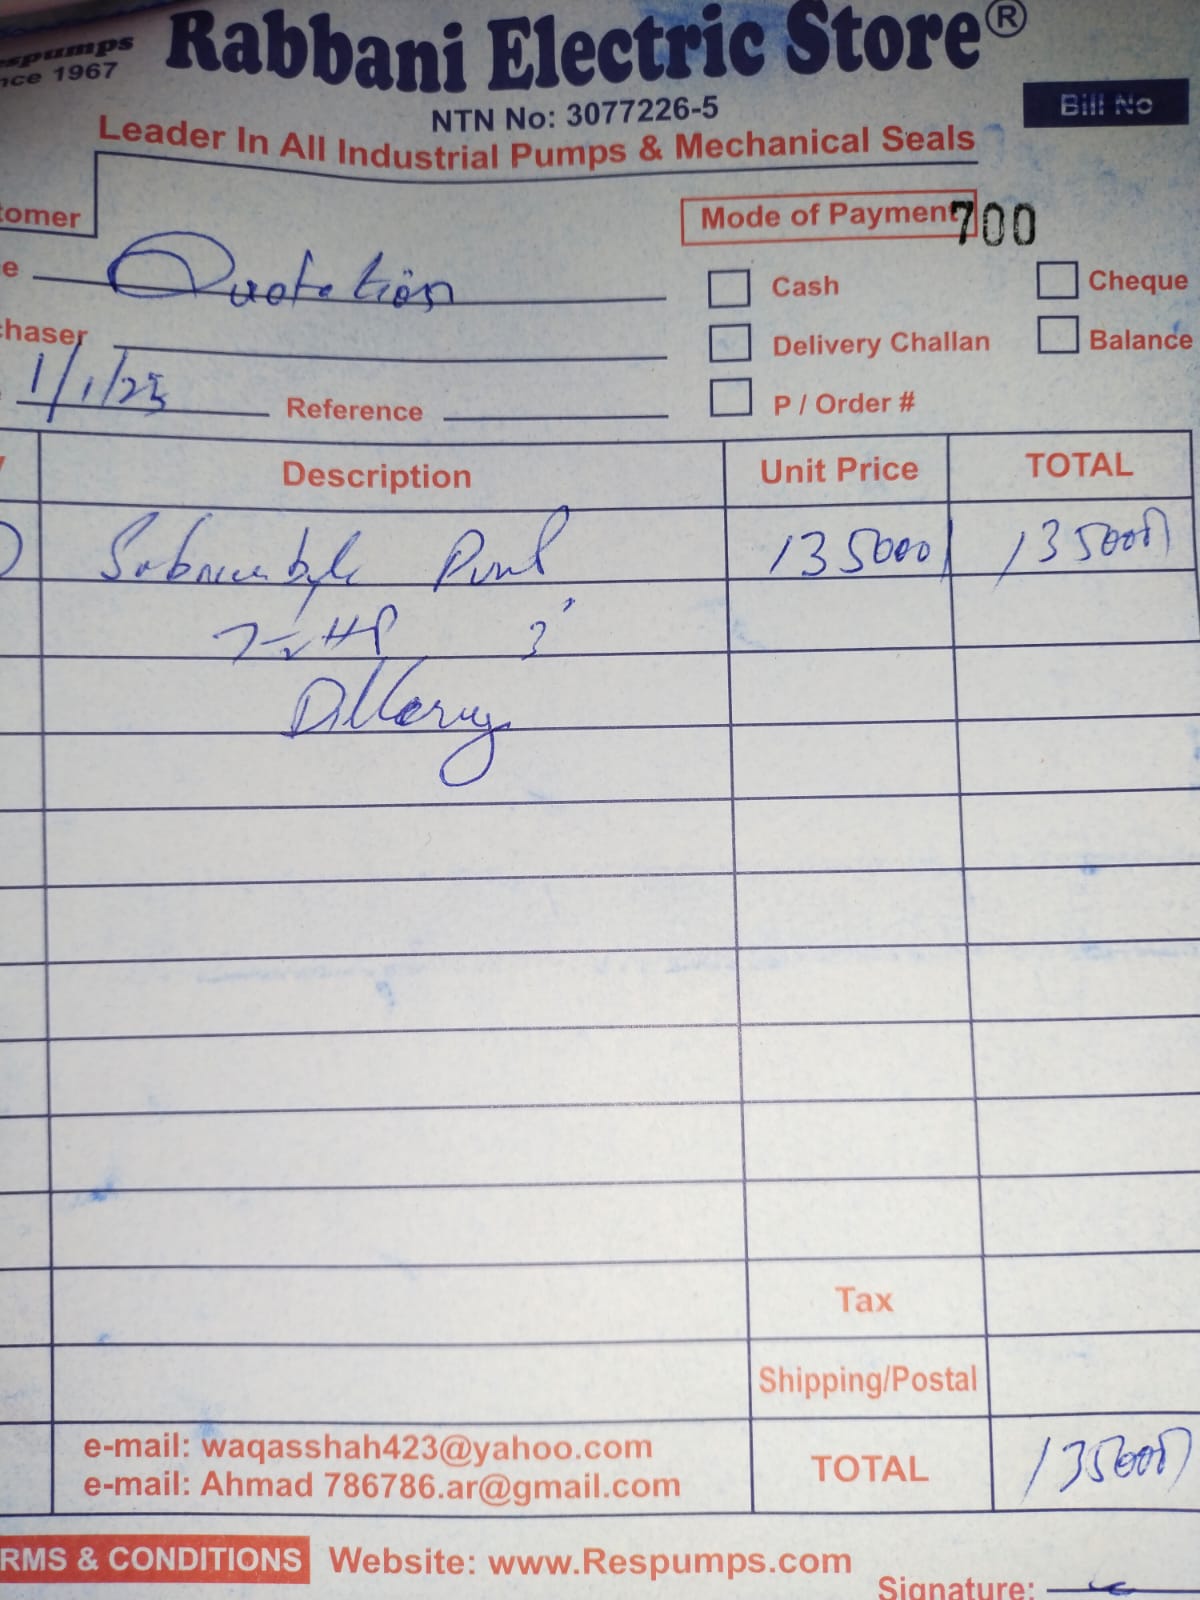 Respumps
Since 1967
Rabbani Electric Store®
NTN No: 3077226-5
Bill No
Leader In All Industrial Pumps & Mechanical Seals
tomer
Mode of Payment
700
e
Quotation
Cash
Cheque
chaser
Delivery Challan
Balance
1/1/25
Reference
P / Order #
Description
Unit Price
TOTAL
135000
135000
HP 3"
Tax
Shipping/Postal
e-mail: waqasshah423@yahoo.com
e-mail: Ahmad 786786.ar@gmail.com
TOTAL
135000
RMS & CONDITIONS
Website: www.Respumps.com
Signature: